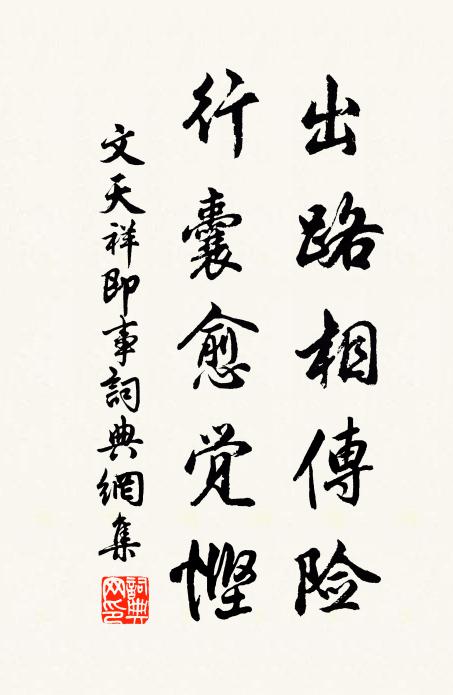 出路相傳险
行囊愈觉悭
文天祥即事詞典網集
詞典网印